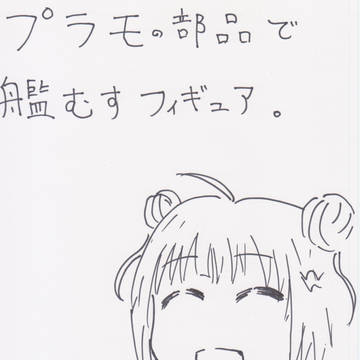 プラモの部品で
艦むすフィギュア。